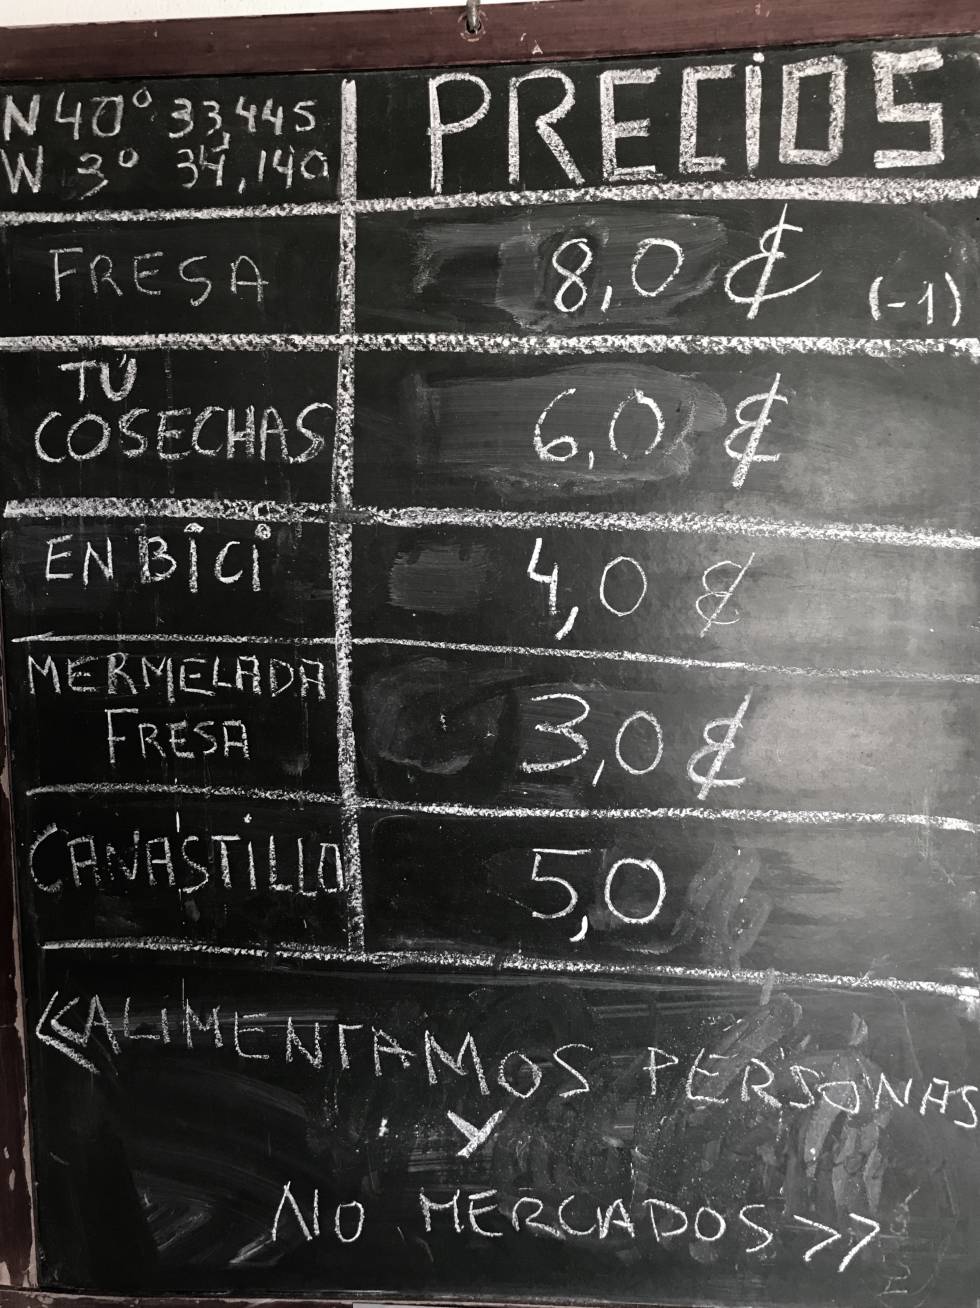 N 40° 33,445
W 3° 34,140
PRECIOS
FRESA 8,0 ₡ (-1)
TÚ
COSECHAS 6,0 ₡
EN BICI 4,0 ₡
MERMELADA
FRESA 3,0 ₡
CANASTILLO 5,0
<<ALIMENTAMOS PERSONAS
Y
NO MERCADOS>>